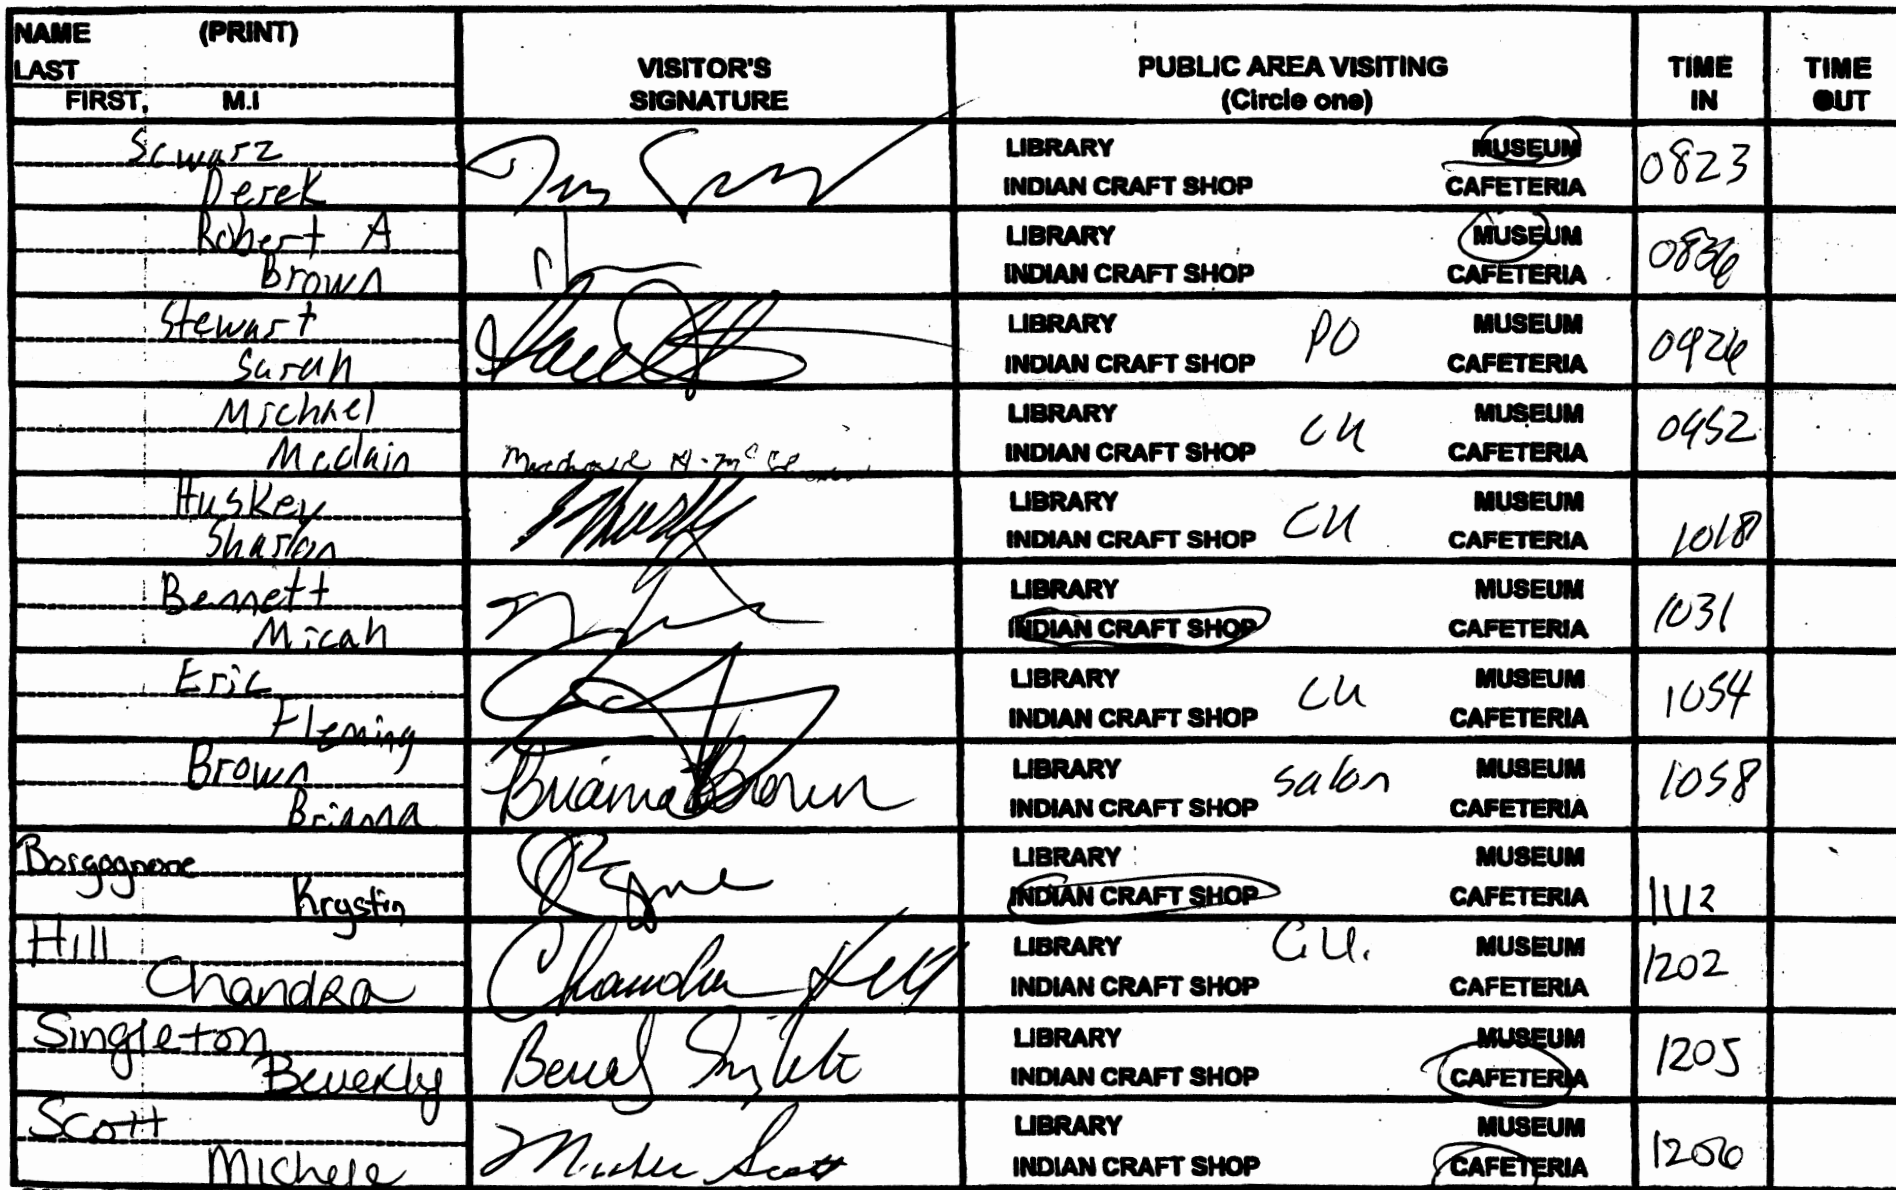 NAME (PRINT)
LAST
FIRST, M.I
VISITOR'S
SIGNATURE
PUBLIC AREA VISITING
(Circle one)
TIME
IN
TIME
OUT
Scwarz
Derek
LIBRARY MUSEUM
INDIAN CRAFT SHOP CAFETERIA
0823
Robert A
Brown
LIBRARY MUSEUM
INDIAN CRAFT SHOP CAFETERIA
0836
Stewart
Sarah
LIBRARY PO MUSEUM
INDIAN CRAFT SHOP CAFETERIA
0926
Michael
Mcclain
LIBRARY CU MUSEUM
INDIAN CRAFT SHOP CAFETERIA
0952
Huskey
Sharlon
LIBRARY CU MUSEUM
INDIAN CRAFT SHOP CAFETERIA
1018
Bennett
Micah
LIBRARY MUSEUM
INDIAN CRAFT SHOP CAFETERIA
1031
Eric
Fleming
LIBRARY CU MUSEUM
INDIAN CRAFT SHOP CAFETERIA
1054
Brown
Brianna
Brianna Brown
LIBRARY salon MUSEUM
INDIAN CRAFT SHOP CAFETERIA
1058
Borgognone
Krystin
LIBRARY MUSEUM
INDIAN CRAFT SHOP CAFETERIA
1112
Hill
Chandra
Chandra Hill
LIBRARY C.U. MUSEUM
INDIAN CRAFT SHOP CAFETERIA
1202
Singleton
Beverly
LIBRARY MUSEUM
INDIAN CRAFT SHOP CAFETERIA
1205
Scott
Michele
Michele Scott
LIBRARY MUSEUM
INDIAN CRAFT SHOP CAFETERIA
1206